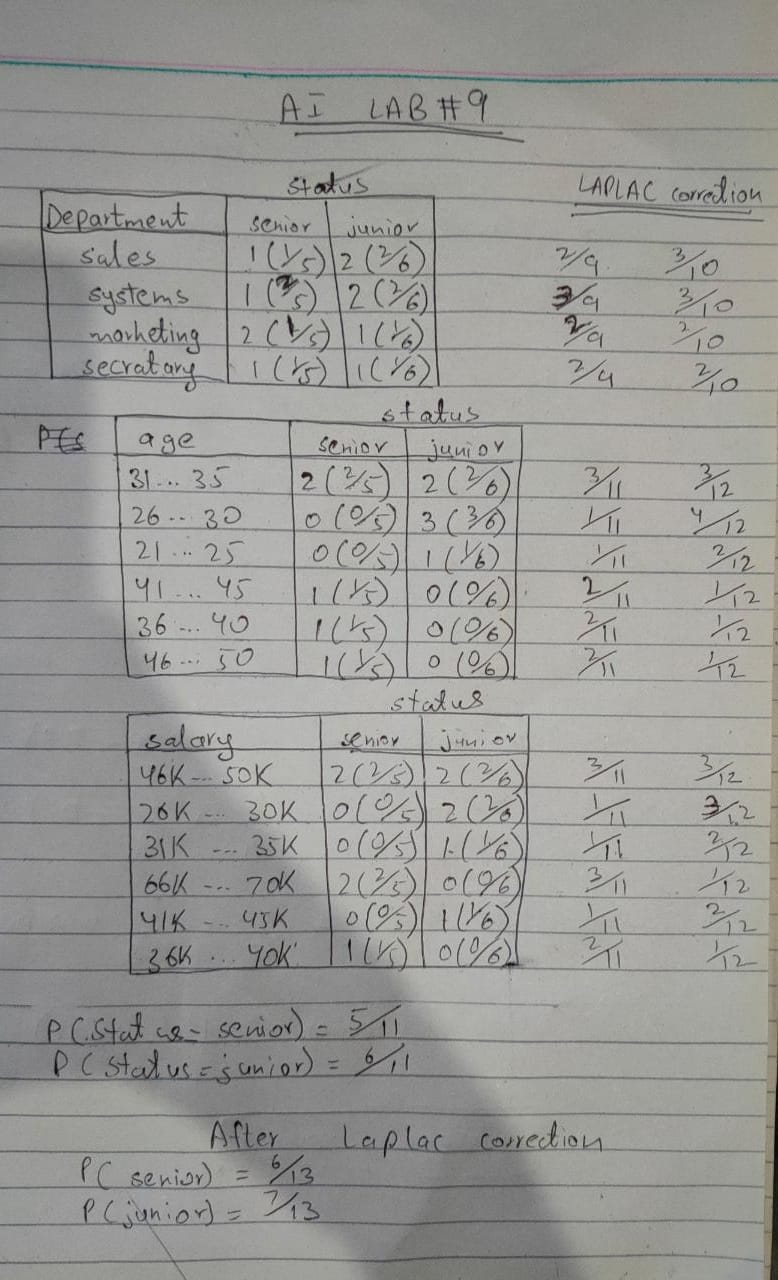 AI LAB #9
status LAPLAC correction
Department senior junior
sales 1 (1/5) 2 (2/6) 2/9 3/10
systems 1 (2/5) 2 (2/6) 3/9 3/10
marketing 2 (1/5) 1 (1/6) 2/9 2/10
secratary 1 (1/5) 1 (1/6) 2/9 2/10
status
age senior junior
31... 35 2 (2/5) 2 (2/6) 3/11 3/12
26... 30 0 (0/5) 3 (3/6) 1/11 4/12
21... 25 0 (0/5) 1 (1/6) 1/11 2/12
41... 45 1 (1/5) 0 (0/6) 2/11 1/12
36... 40 1 (1/5) 0 (0/6) 2/11 1/12
46... 50 1 (1/5) 0 (0/6) 2/11 1/12
status
salary senior junior
46K... 50K 2 (2/5) 2 (2/6) 3/11 3/12
26K... 30K 0 (0/5) 2 (2/6) 1/11 3/12
31K... 35K 0 (0/5) 1 (1/6) 1/11 2/12
66K... 70K 2 (2/5) 0 (0/6) 3/11 1/12
41K... 45K 0 (0/5) 1 (1/6) 1/11 2/12
36K... 40K 1 (1/5) 0 (0/6) 2/11 1/12
P(Status= senior) = 5/11
P(Status=junior) = 6/11
After Laplac correction
P( senior) = 6/13
P(junior) = 7/13